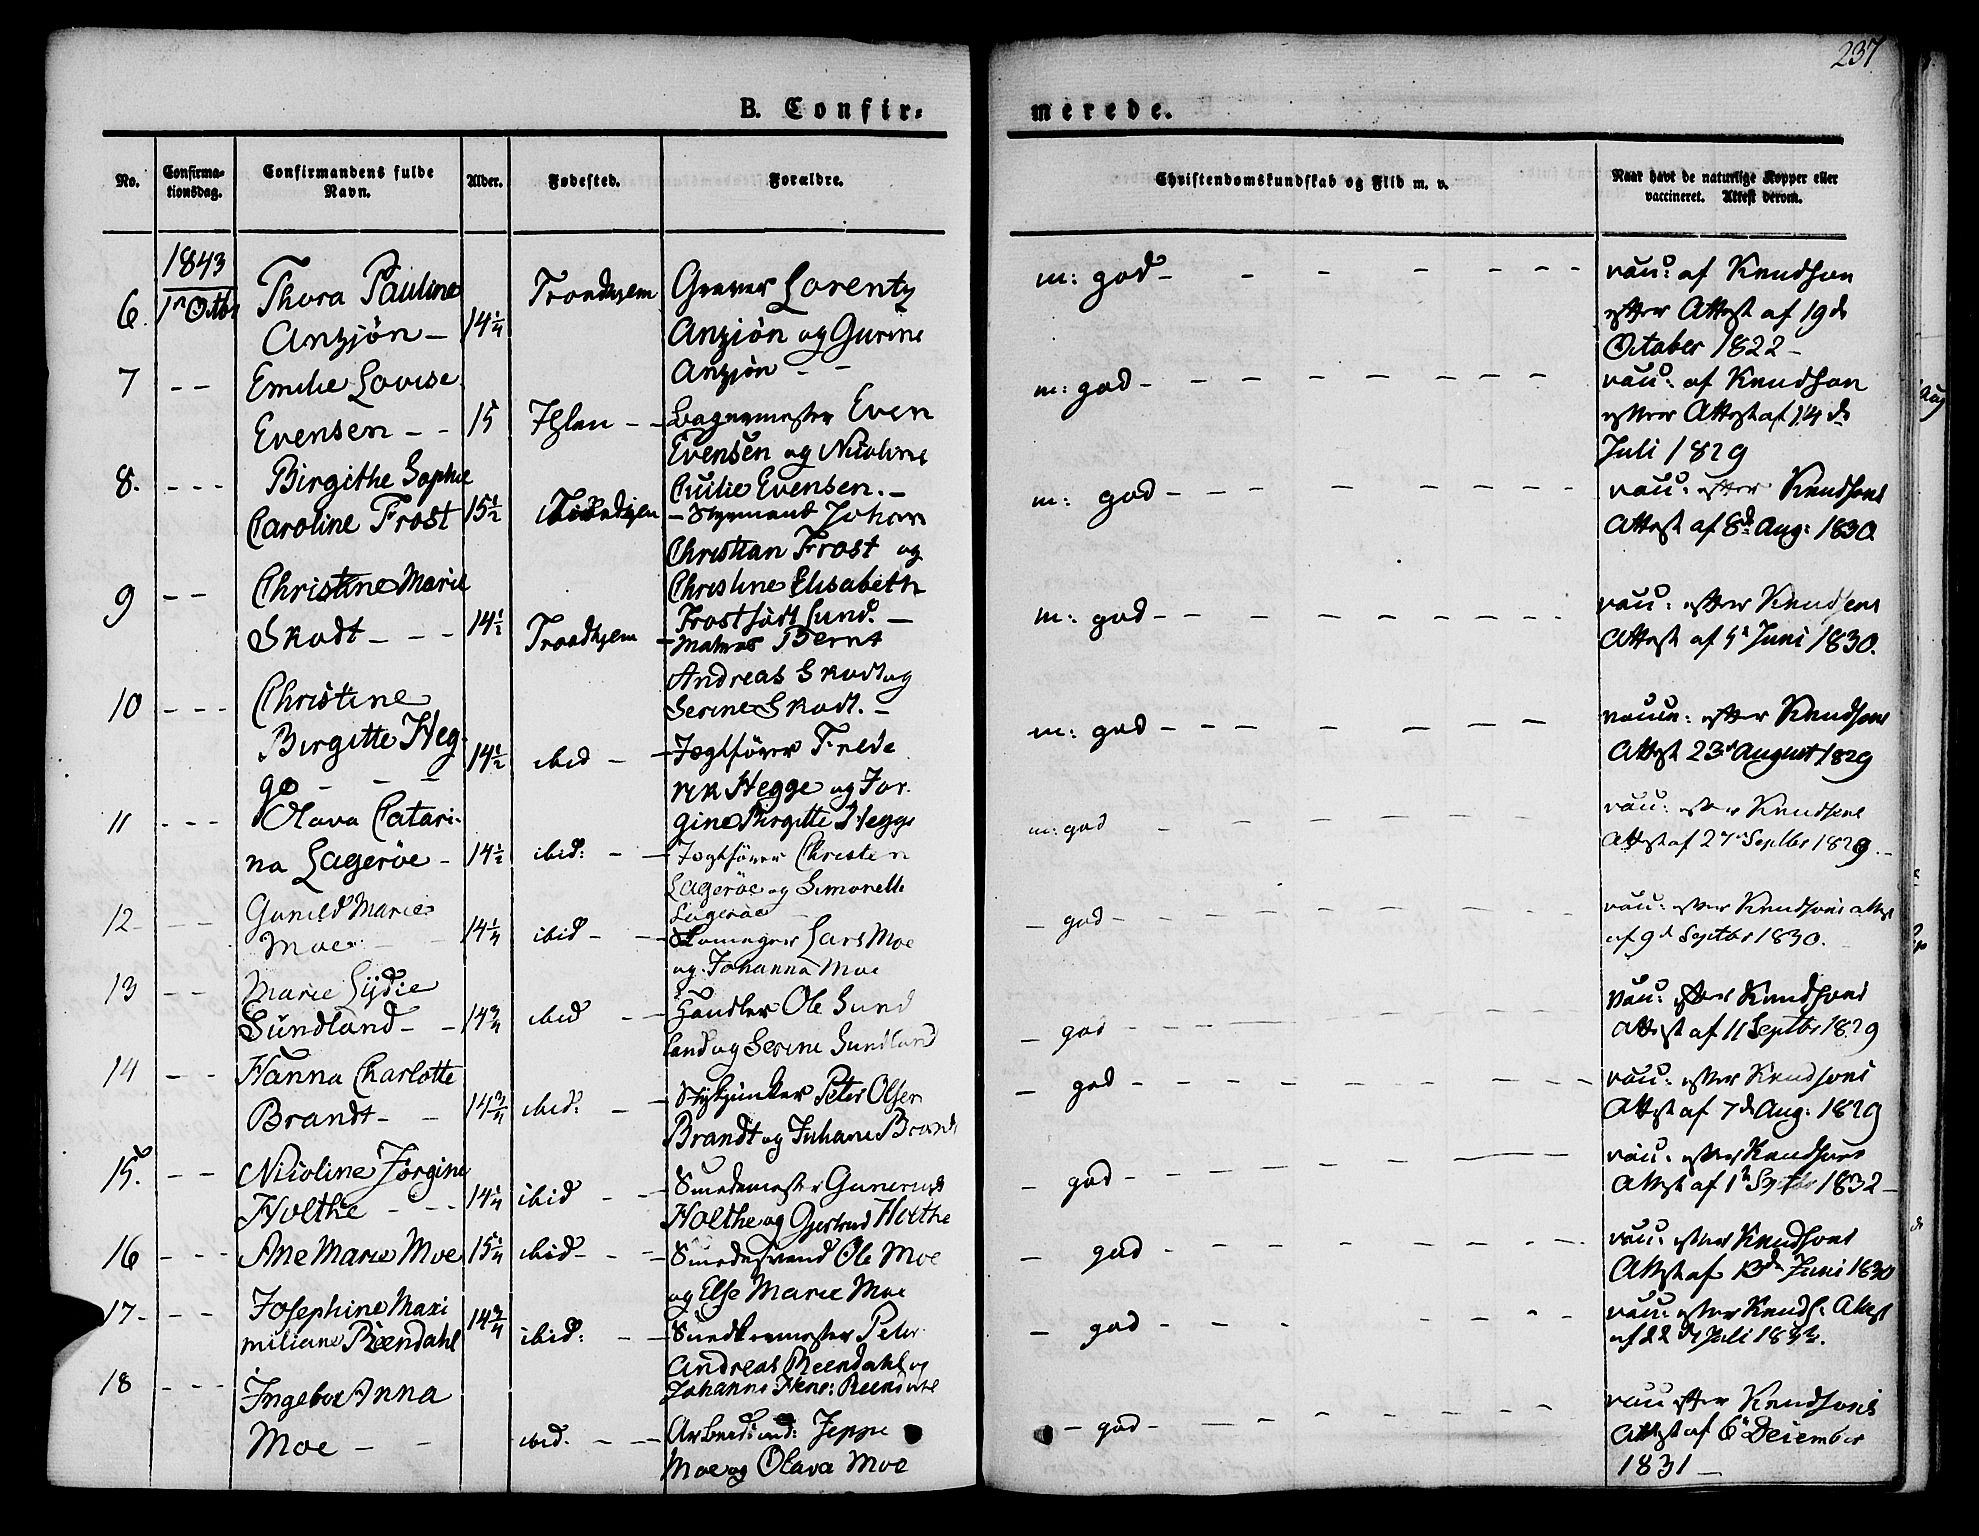 237
B. Confir-
merede.
No.
Confirma-
tionsdag.
Confirmandens fulde
Navn.
Alder.
Fødested.
Forældre.
Christendomskundskab og Flid m. v.
Naar havt de naturlige Kopper eller
vaccineret. Attest derom.
1843
6. 1ste Octbr Thora Pauline
Anzjön – 14 1/4 Trondhjem
Lorentz
Anzjön og Gurine
Anzjön – –
m: god – – – – – – –
vacc: af Knudson
efter Attest af 19de
October 1822 –
7 – – Emilie Lovise
Evensen – – 15 Ihlen – –
Bagermester Even
Evensen og Nicoline
Cecilie Evensen. –
m: god – – – – – – – – –
vacc: af Knudson
efter Attest af 14de
Juli 1829
8. – – – Birgithe Sophie
Caroline Frost 15 1/2
– Styrmand Johan
Christian Frost og
Christine Elisabeth
Frost født Lund. –
m: god – – – – – – – – –
vacc: efter Knudsons
Attest af 8de Aug: 1830
9 – – Christine Marie
Skodt – – – 14 1/2 Trondhjem
– Matros Bernt
Andreas Skodt og
Serine Skodt. –
m: god – – – – – – – –
vacc: efter Knudsons
Attest af Juni 1830.
10 – – – Christine
Birgitte Heg-
ge – – – 14 1/2 ibid – –
– Jægtfører Frede
rik Hegge og Jor-
gine Birgitte Hegge
m: god – – – – – – –
vaccn: efter Knudsons
Attest 23d August 1829
11 – – – Olava Catari-
na Lagerøe – 14 1/2 ibid: – –
Jægtfører Christen
Lagerøe og Simonelle
Lagerøe
m: god – – – – – – –
vacc: efter Knudsons
Attest af 27de Septbr 1829. –
12 – – Gunild Marie
Moe – – 14 1/4 ibid – –
Skomager Lars Moe
og Johanna Moe
– god – – – – – – – –
vacc: efter Knudsons attest
af 9de Septbr 1830.
13 – – Marie Lydie
Sundland – – 14 3/4 ibid – –
Handler Ole Sund
land og Serine Sundland
– god – – – – – – – –
vacc: efter Knudsons
Attest af 11 Septbr 1829
14 – – Hanna Charlotte
Brandt – – 14 3/4 ibid: – –
Stykjunker Peter Olsen
Brandt og Johane Brandt
– god – – – – – – – –
vacc: efter Knudsons
Attest af 7de Aug: 1829
15. – – Nicoline Jørgine
Holthe – – – 14 1/4 ibid – –
Smedemester
Holthe og Gjertrud Holthe
– god – – – – – – –
vacc: efter Knudsons
Attest af 1ste Septbr 1832 –
16 – – – Ane Marie Moe 15 1/4 ibid – – –
Smedesvend Ole Moe
og Else Marie Moe
– god – – – – – – – –
vacc: efter Knudsons
Attest af 13de Juni 1830
17 – – – Josephine Maxi
miliane Reendahl 14 3/4 ibid: – –
Snedkermester Peter
Andreas Reendahl og
Johanne Reendahl
– god – – – – – – –
vacc: efter Knuds: Attest
af 22de Juli
18 – – – Ingebor Anna
Moe – – ibid. – – –
Arbeidsmd: Jeppe
Moe og Olava Moe
– god – – – – – – – –
vacc efter Knudsons
Attest af 6te December
1831 –